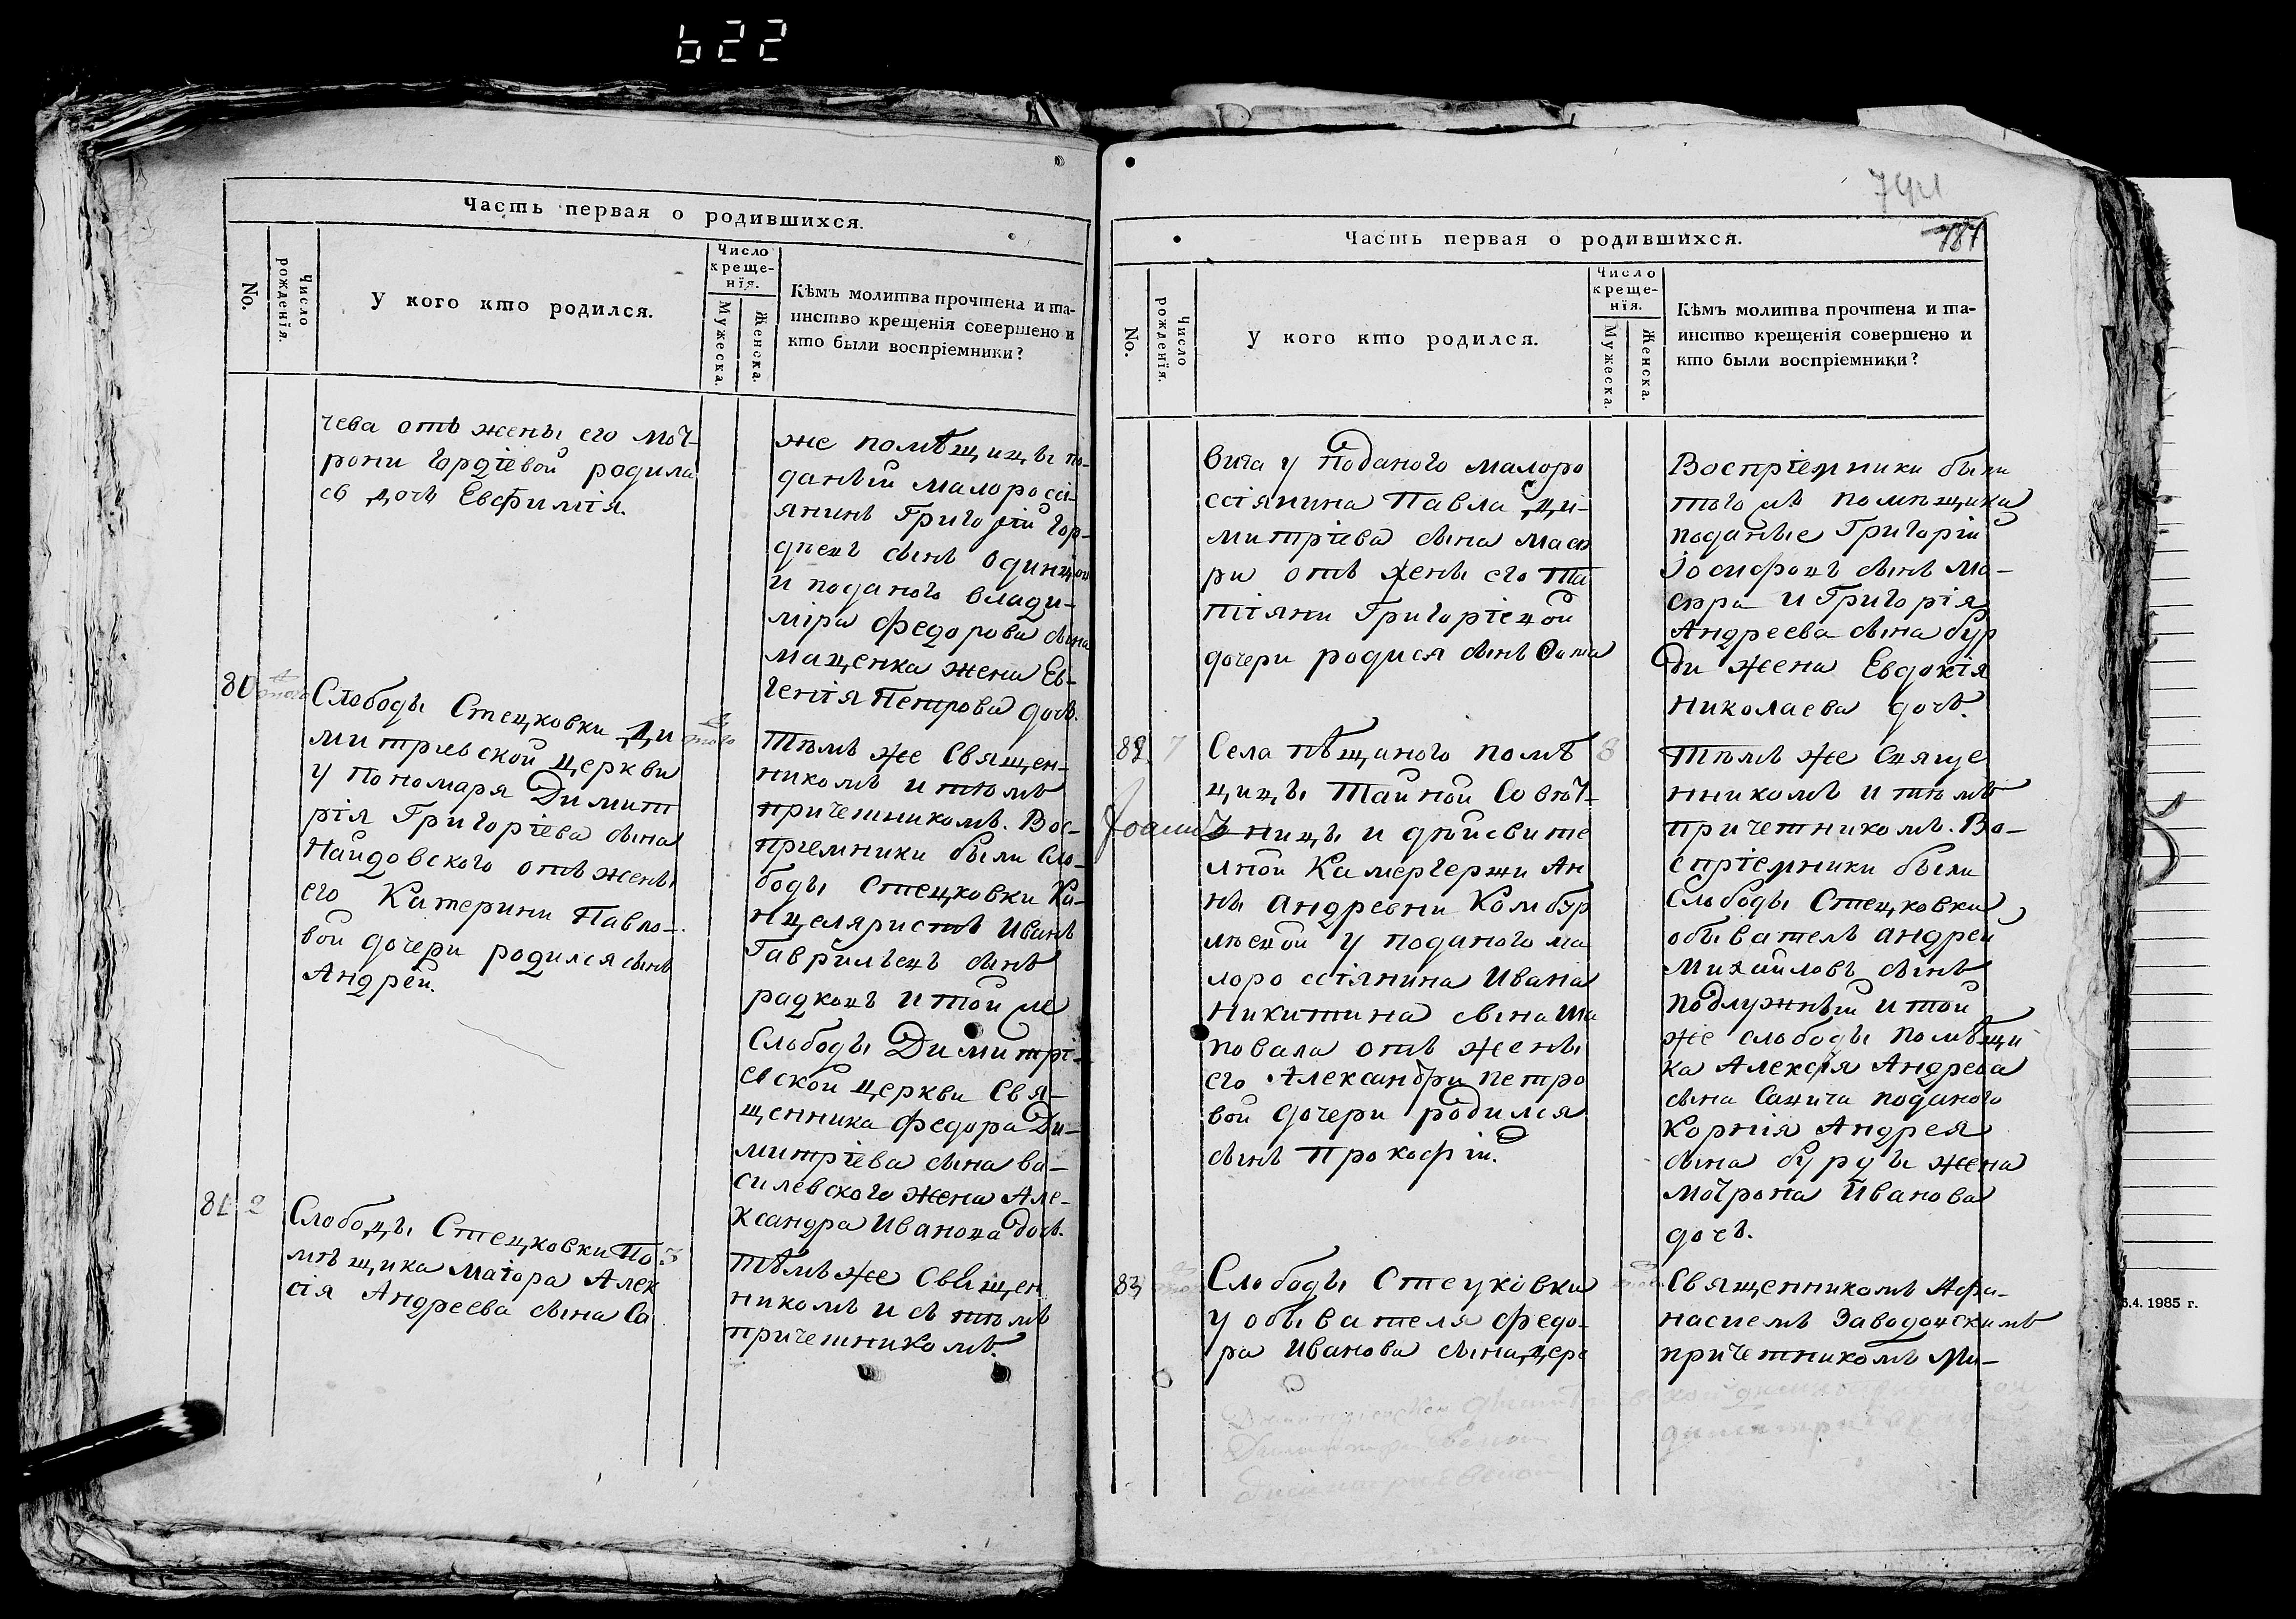 622
Часть первая о родившихся.
No.
Число рожденія.
У кого кто родился.
Число
креще-
нїя.
Мужеска.
Женска.
Кѣмъ молитва прочтена и та-
инство крещенія совершено и
кто были воспріемники?
чева отъ жены его Мот-
рони Гордіевой родила
сь дочь Евфимія.
же помѣщицы по-
даный малоросі-
янинъ Григорій Гор-
дпевъ сынъ Одинцов
и поданого Влади-
міра Федорова сына
Маценка жена Ев-
генія Петрова дочь.
80
Слободы Стецковки Ди
митриевской церкви
у Пономаря Димит
рія Григоріева сына
Наидовского отъ жены
его Катерини Павло-
вой дочери родился сынъ
Андрей.
Тѣмъ же Священ-
никомъ и тѣмъ
причетникомъ. Вос-
приемники были Сло-
боды Стецковки Ка-
нцеляристъ Иванъ
Гаврильевъ сынъ
радковъ и той же
Слободы Димитрі-
евской церкви Свя-
щенника Федора Ди-
митріева сына Ва-
силевского жена Але-
ксандра Иванова дочь.
81 2
Слободы Стецковки По
мѣщика Маіора Алек
сія Андреева сына Са
3
Тѣмъ же Священ
никомъ и съ тѣмъ
причетникомъ.
794
787
Часть первая о родившихся.
No.
Число рожденїя.
У кого кто родился.
Число
креще-
нїя.
Мужеска.
Женска.
Кѣмъ молитва прочтена и та-
инство крещенія совершено и
кто были воспріемники?
вича у Поданого малоро
ссіянина Павла Ди-
митріева сына Маст
ри отъ жены его Та
тіяни Григоріевой
дочери родися сынъ Фома
Воспріемники были
того жъ помѣщика
поданые Григорій
Іосифовъ сынъ Ма-
стра и Григорія
Андреева сына Бур
ди жена Евдокія
Николаева дочь.
82. 7
Села Пѣщаного помѣ
щицы Тайной Совѣт-
ницы и дѣйсвите
лной Камергерши Ан
ны Андревни Комбур
лѣевой у поданого ма
лоро ссіянина Ивана
Никитина сына Ша
повала отъ жены
его Александри Петро
вой дочери родился
сынъ Прокофій.
8
Тѣмъ же Свяще
нникомъ и тѣмъ
причетникомъ. Во-
спріемники были
Слободы Стецковки
обыватель Андрей
Михайловъ сынъ
Подлужный и той
же слободы помѣщи
ка Алексія Андрева
сына Савича поданого
Корнія Андрея
сына Бурды жена
Мотрона Иванова
дочь.
83
Слободы Стецковки
у обывателя Федо-
ра Иванова сына Дере
Священникомъ Афа-
насиемъ Заводовскимъ
причетникомъ Ми-
6.4. 1985 г.